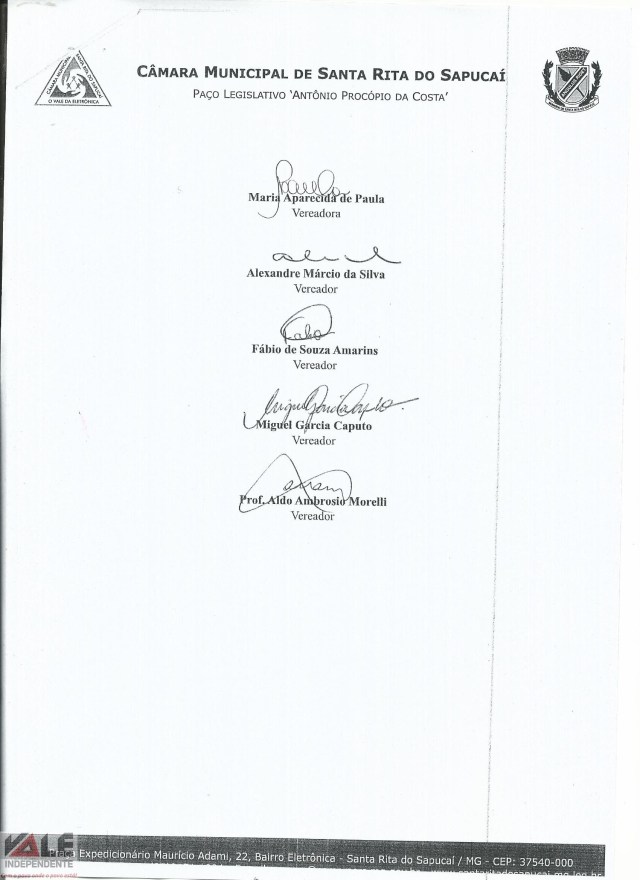 CÂMARA MUNICIPAL DE SANTA RITA DO SAPUCAÍ
PAÇO LEGISLATIVO 'ANTÔNIO PROCÓPIO DA COSTA'
O VALE DA ELETRÔNICA
Maria Aparecida de Paula
Vereadora
Alexandre Márcio da Silva
Vereador
Fábio de Souza Amarins
Vereador
Miguel Garcia Caputo
Vereador
Prof. Aldo Ambrosio Morelli
Vereador
VALE
INDEPENDENTE
Expedicionário Maurício Adami, 22, Bairro Eletrônica - Santa Rita do Sapucaí / MG - CEP: 37540-000